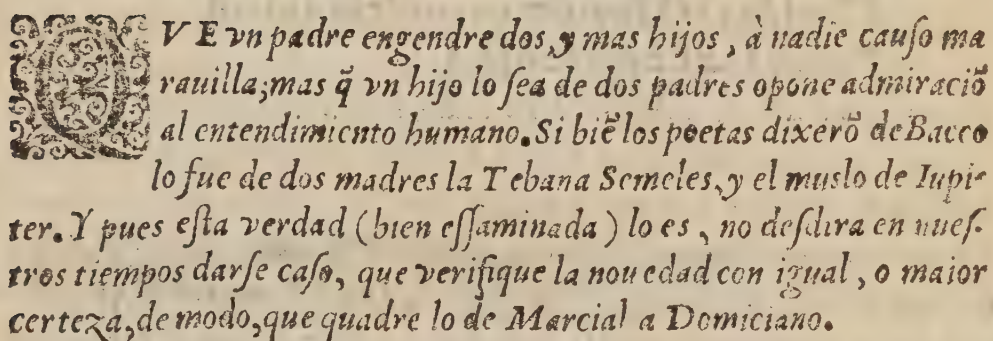 QVE vn padre engendre dos, y mas hijos, à nadie causo ma
rauilla; mas q̃ vn hijo lo sea de dos padres opone admiraciõ
al entendimiento humano. Si biẽ los poetas dixerõ de Bacco
lo fue de dos madres la Tebana Semeles, y el muslo de Iupi-
ter. Y pues esta verdad (bien essaminada) lo es, no desdira en nues-
tros tiempos darse caso, que verifique la nouedad con igual, o maior
certeza, de modo, que quadre lo de Marcial a Domiciano.